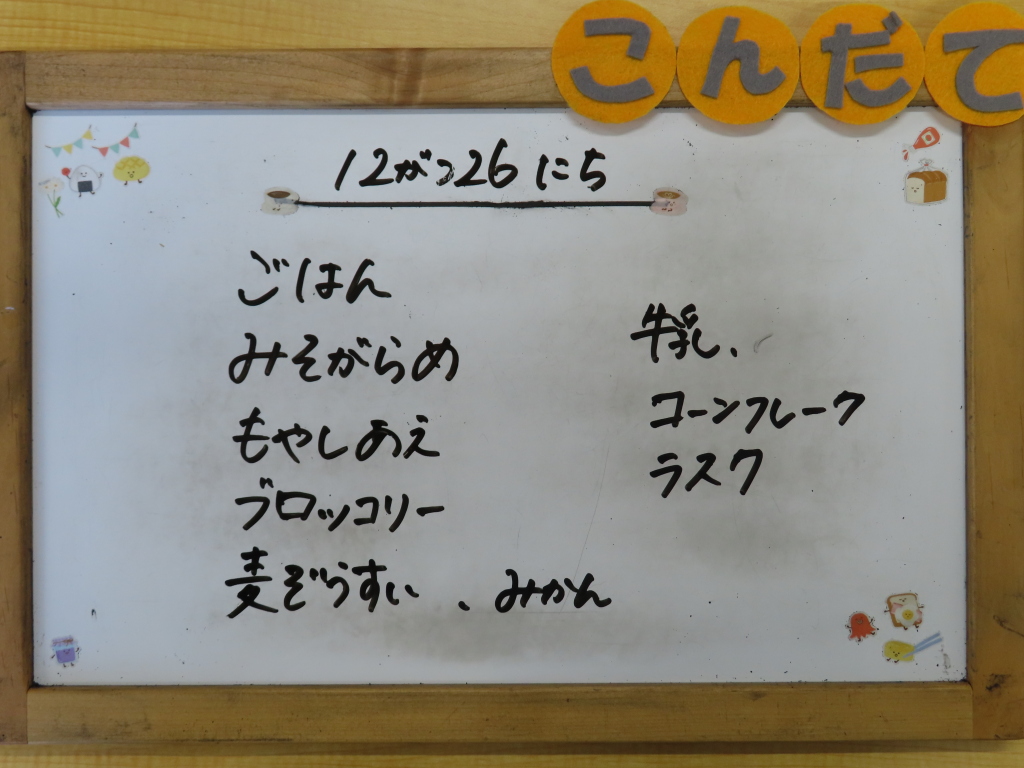 こんだて
12がつ26にち
ごはん
みそがらめ
もやしあえ
ブロッコリー
麦ぞうすい、みかん
牛乳、
コーンフレーク
ラスク